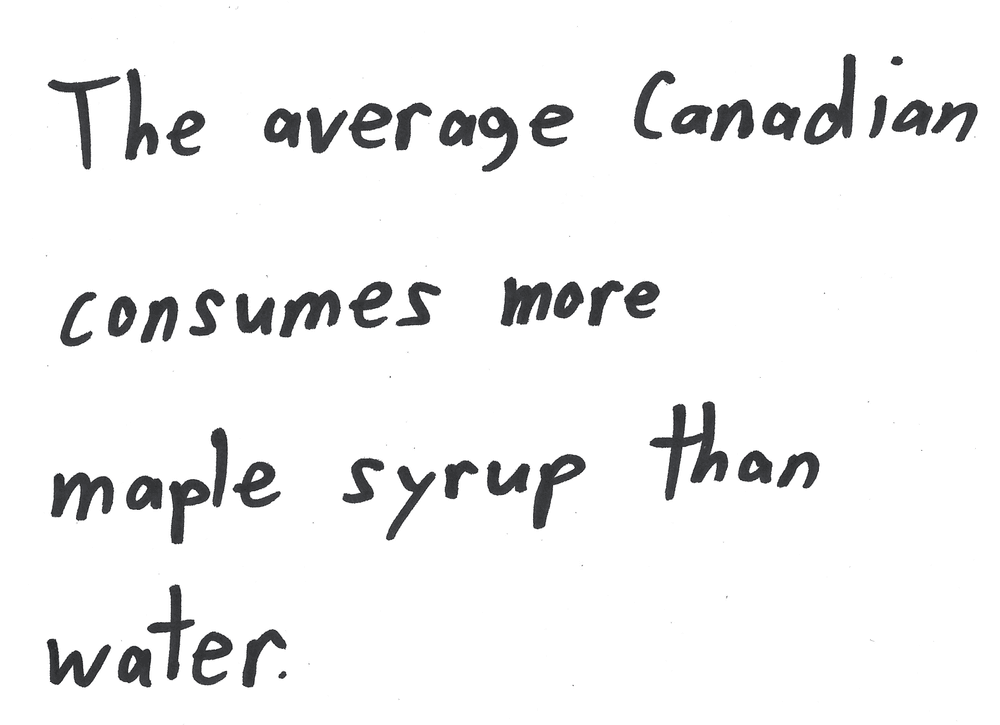 The average Canadian
consumes more
maple syrup than
water.